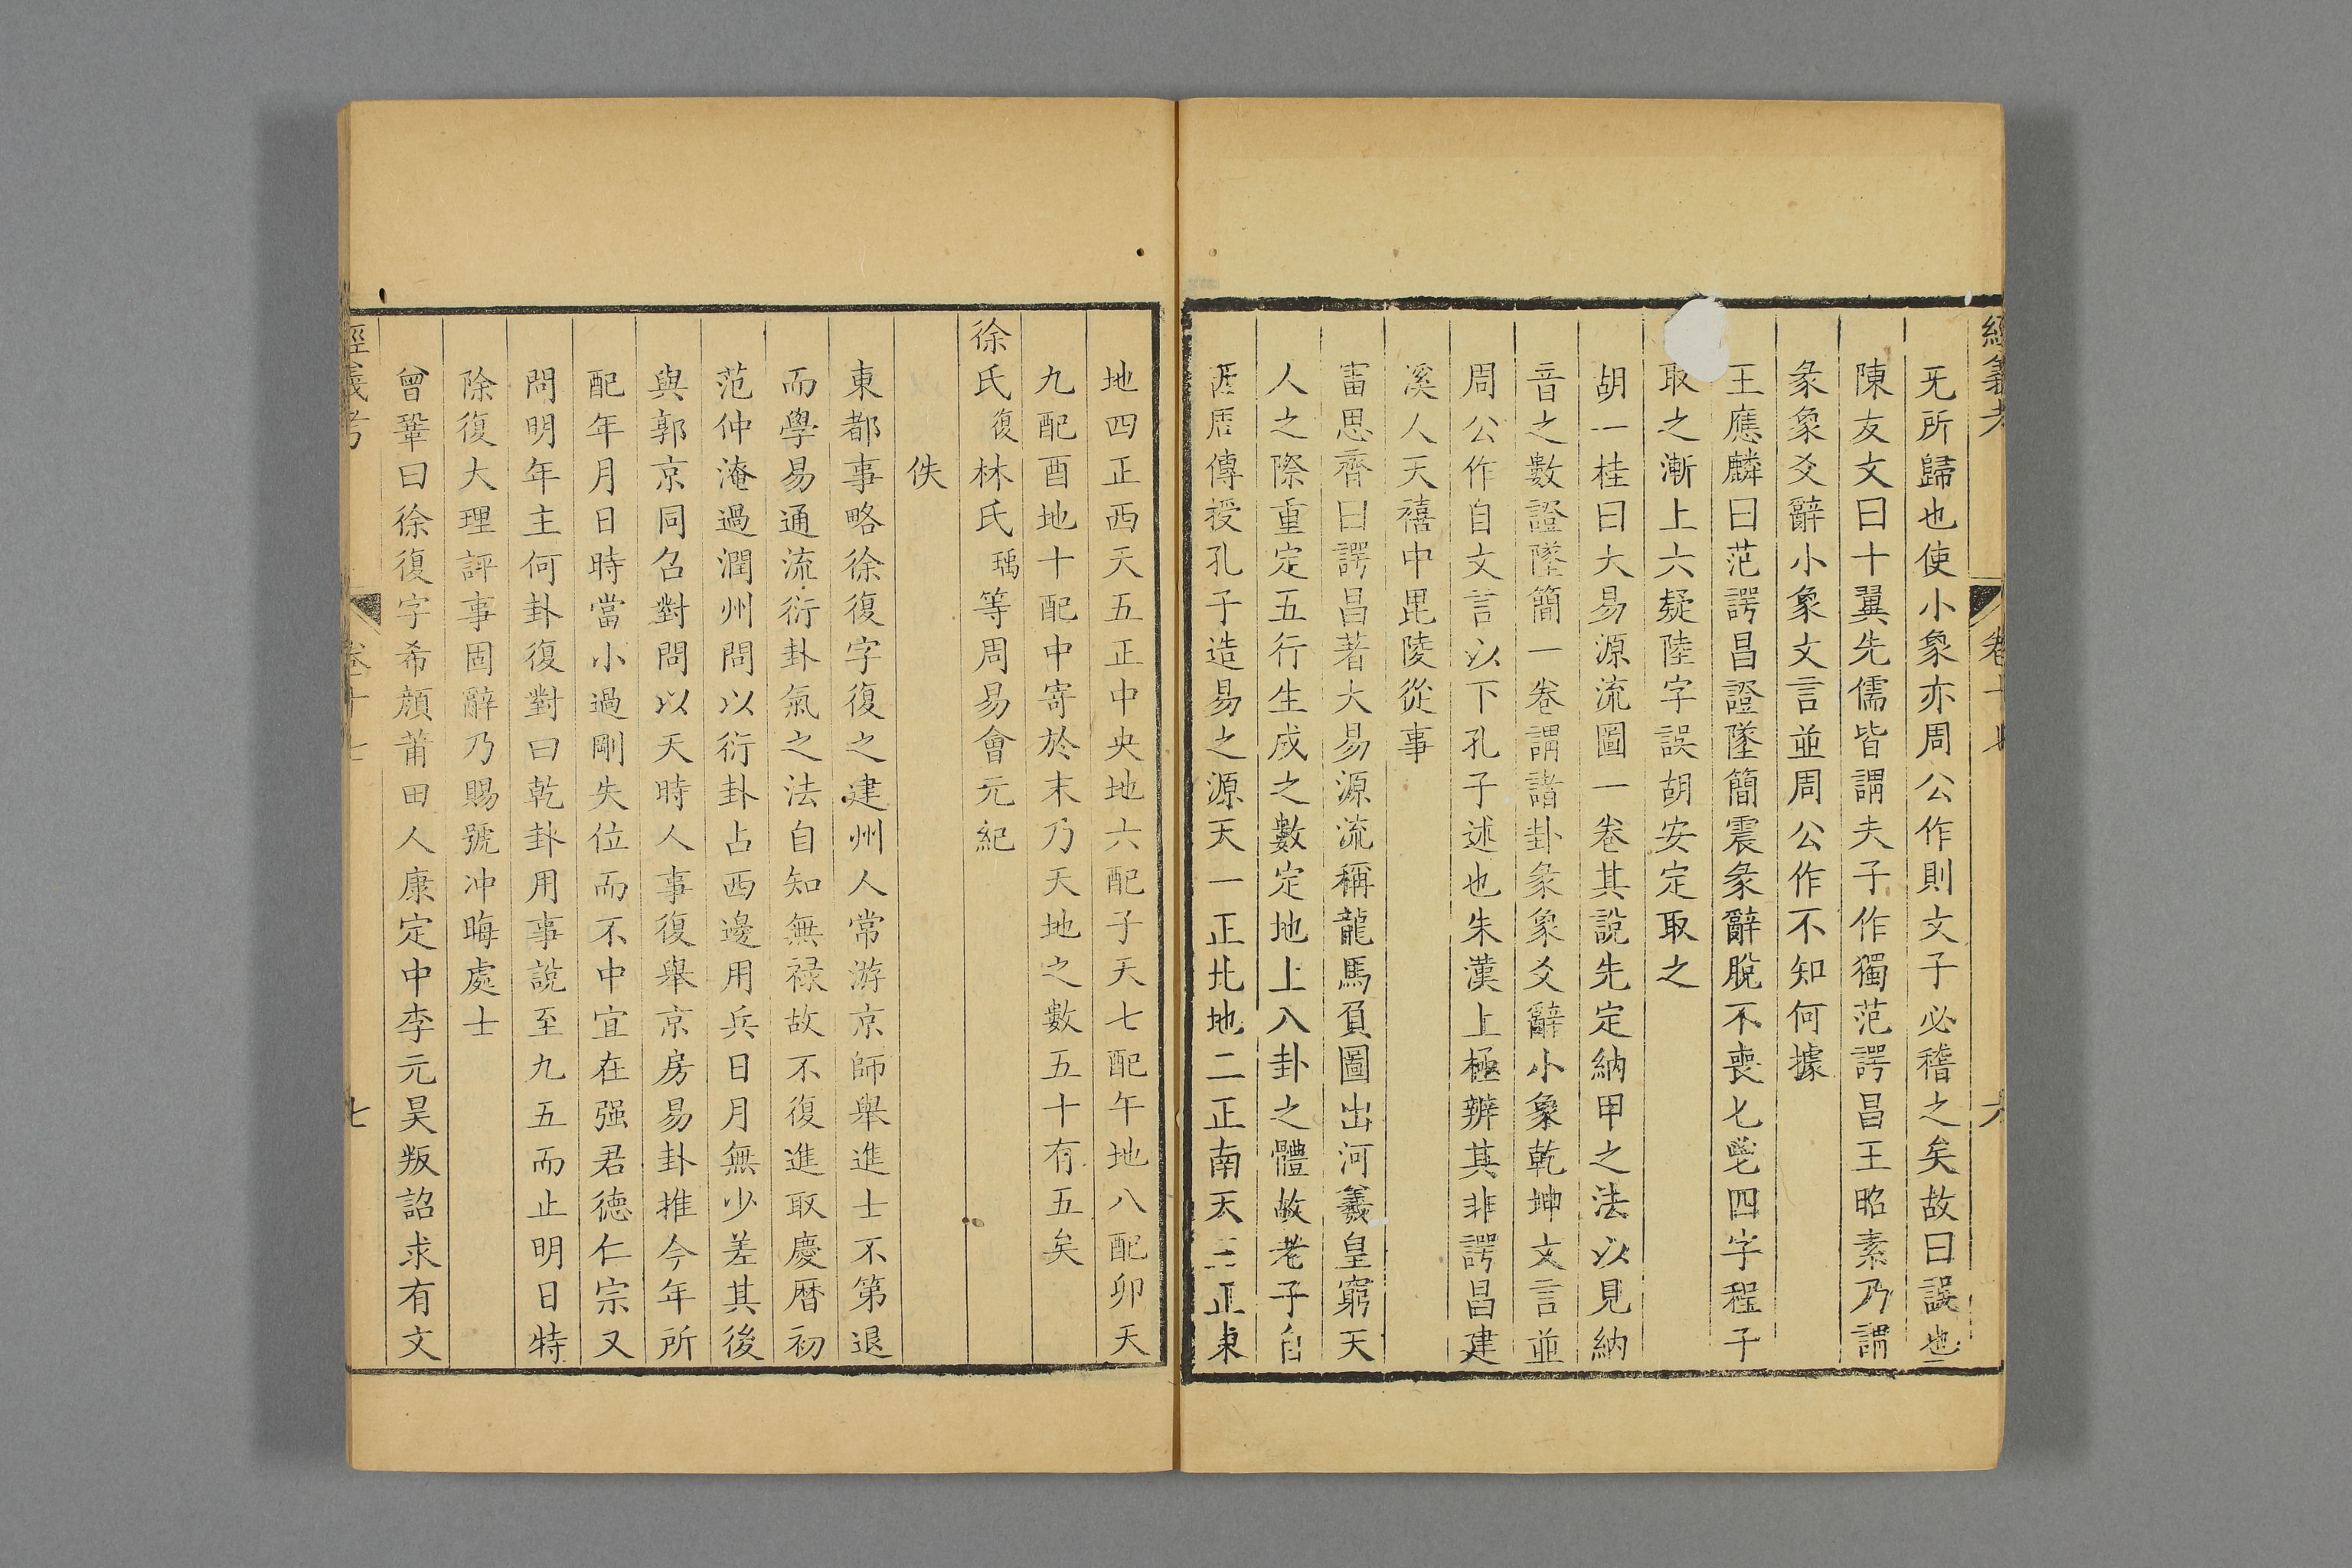 經義考 卷十七 六
无所歸也使小象亦周公作則文子必稽之矣故曰誤也
陳友文曰十翼先儒皆謂夫子作獨范諤昌王昭素乃謂
彖象爻辭小象文言並周公作不知何據
王應麟曰范諤昌證墜簡震彖辭脫不喪匕鬯四字程子
取之漸上六疑陸字誤胡安定取之
胡一桂曰大易源流圖一卷其說先定納甲之法以見納
音之數證墜簡一卷謂諸卦彖象爻辭小象乾坤文言並
周公作自文言以下孔子述也朱漢上極辨其非諤昌建
溪人天禧中毘陵從事
雷思齊曰諤昌著大易源流稱龍馬負圖出河羲皇窮天
人之際重定五行生成之數定地上八卦之體故老子自
西周傳授孔子造易之源天一正北地二正南天三正東
地四正西天五正中央地六配子天七配午地八配卯天
九配酉地十配中寄於末乃天地之數五十有五矣
徐氏復林氏瑀等周易會元紀
佚
東都事略徐復字復之建州人常游京師舉進士不第退
而學易通流衍卦氣之法自知無祿故不復進取慶曆初
范仲淹過潤州問以衍卦占西邊用兵日月無少差其後
與郭京同召對問以天時人事復舉京房易卦推今年所
配年月日時當小過剛失位而不中宜在强君德仁宗又
問明年主何卦復對曰乾卦用事說至九五而止明日特
除復大理評事固辭乃賜號沖晦處士
曾鞏曰徐復字希顔莆田人康定中李元昊叛詔求有文
經義考 卷十七 七